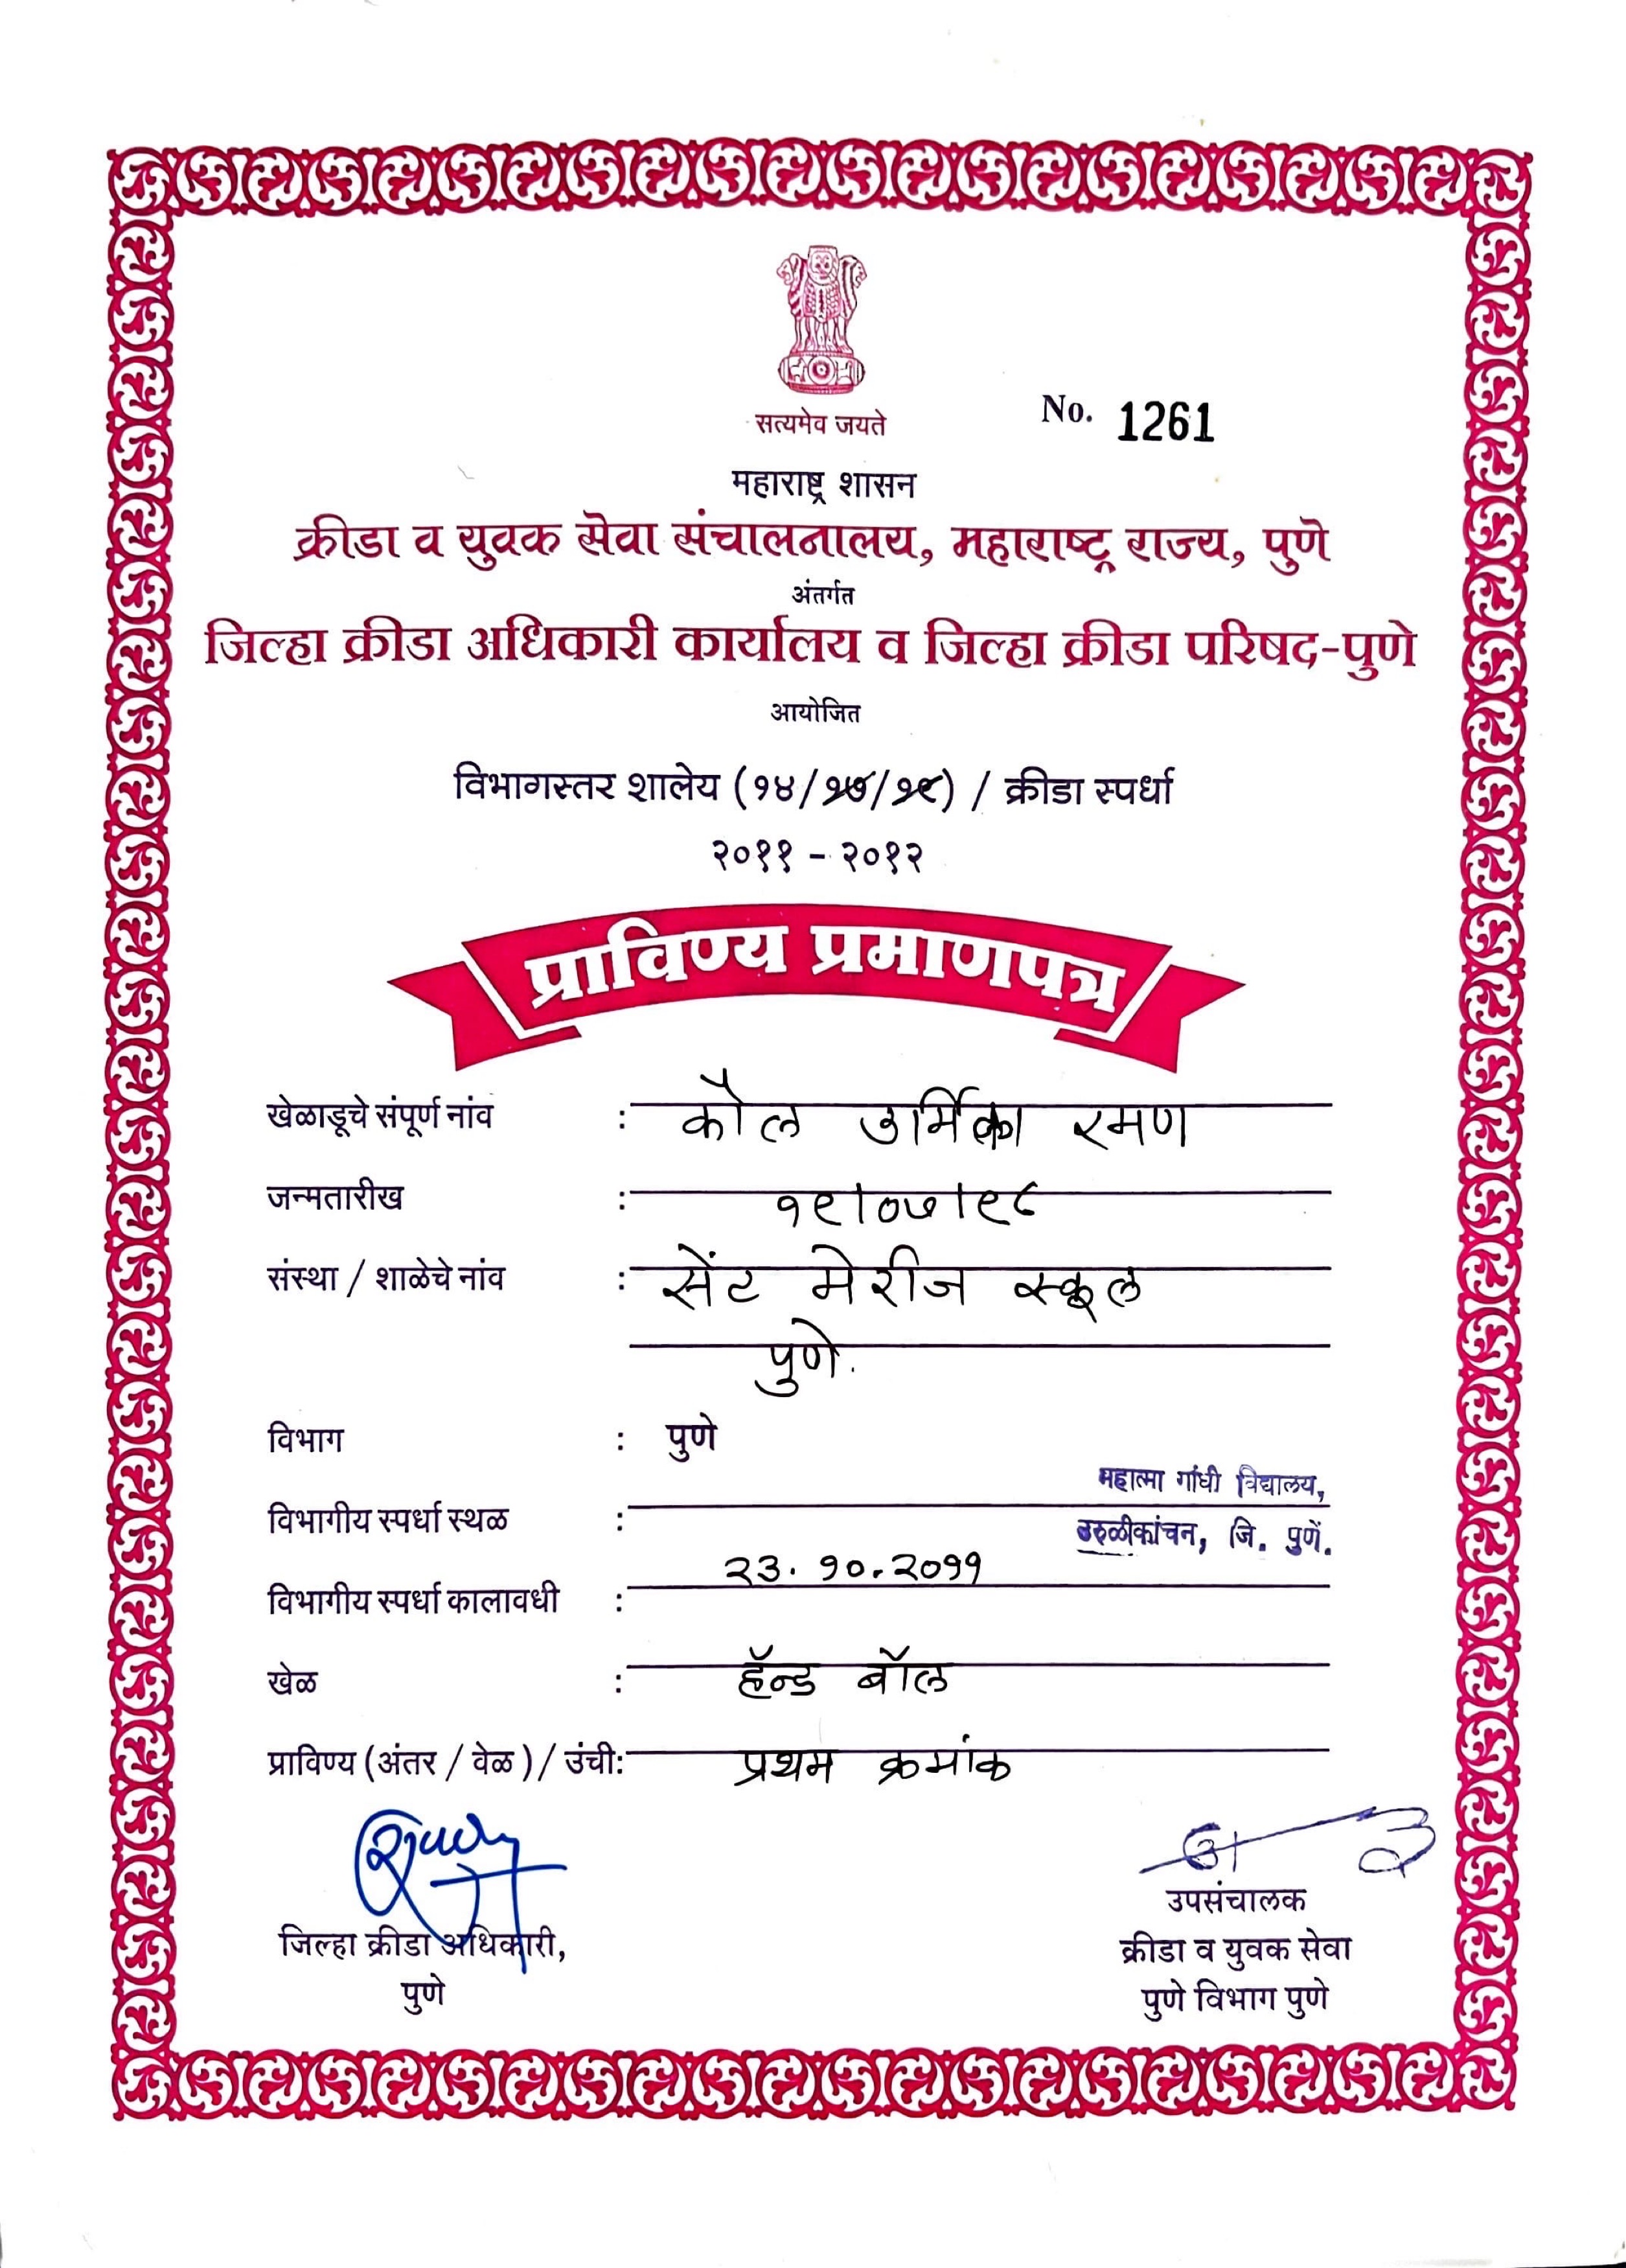 सत्यमेव जयते
No. 1261
महाराष्ट्र शासन
क्रीडा व युवक सेवा संचालनालय, महाराष्ट्र राज्य, पुणे
अंतर्गत
जिल्हा क्रीडा अधिकारी कार्यालय व जिल्हा क्रीडा परिषद-पुणे
आयोजित
विभागस्तर शालेय (१४/१७/१९) / क्रीडा स्पर्धा
२०११ - २०१२
प्राविण्य प्रमाणपत्र
खेळाडूचे संपूर्ण नांव : कौल उर्मिका रमण
जन्मतारीख : १९/०७/९८
संस्था / शाळेचे नांव : सेंट मेरीज स्कूल
पुणे.
विभाग : पुणे
महात्मा गांधी विद्यालय,
विभागीय स्पर्धा स्थळ : उरुळीकांचन, जि. पुणें.
२३. १०. २०११
विभागीय स्पर्धा कालावधी :
खेळ : हॅन्ड बॉल
प्राविण्य (अंतर / वेळ) / उंची: प्रथम क्रमांक
जिल्हा क्रीडा अधिकारी,
पुणे
उपसंचालक
क्रीडा व युवक सेवा
पुणे विभाग पुणे